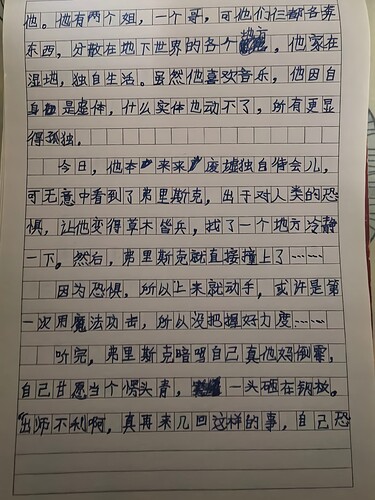 他。他有两个姐，一个哥，可他们仨都各奔
东西，分散在地下世界的各个地方，他家在
湿地，独自生活。虽然他喜欢音乐，但因自
身是虚体，什么实体也动不了，所有更显
得孤独。
今日，他本来来废墟独自待会儿，
可无意中看到了弗里斯克，出于对人类的恐
惧，让他变得草木皆兵，找了一个地方冷静
一下。然后，弗里斯克就直接撞上了……
因为恐惧，所以上来就动手，或许是第
一次用魔法功击，所以没把握好力度……
听完，弗里斯克暗骂自己真他妈倒霉，
自己甘愿当个愣头青，一头硒在钢板。
“出师不利啊，真再来几回这样的事，自己恐